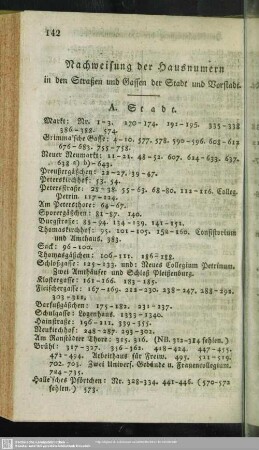 142
Nachweisung der Hausnumern
in den Straßen und Gassen der Stadt und Vorstadt.
A. Stadt.
Markt: Nr. 1-3. 170-174. 191-195. 335-338
386-388. 574.
Grimma'sche Gasse: 4-10. 577. 578. 590-596. 608-612
676-683. 755-758.
Neuer Neumarkt: 11-21. 48-52. 607. 614-633. 637.
638 a) b)-643.
Preußergäßchen: 22-27. 39-47.
Peterskirchhof: 53-54.
Petersstraße: 28-38. 55-63. 68-80. 112-118. Colleg.
Petrin. 117-124.
Am Petersthore: 64-67.
Sporergäßchen: 81-87. 140.
Burgstraße: 88-94. 134-139. 141-152.
Thomaskirchhof: 95. 101-105. 152-160. Consistorium
und Amthaus. 383.
Sack: 96-100.
Thomasgäßchen: 106-111. 186-188.
Schloßgasse: 125-133. und: Neues Collegium Petrinum.
Zwei Amthäuser und Schloß Pleißenburg.
Klostergasse: 161-166. 183-185.
Fleischergasse: 167-169. 212-230. 238-247. 288-292.
303-312.
Barfußgäßchen: 175-182. 231-237.
Schulgasse: Logenhaus. 1333-1340.
Hainstraße: 196-211. 339-355.
Neukirchhof: 248-287. 293-302.
Am Ranstädter Thore: 315. 316. (NB. 312-314 fehlen.)
Brühl: 317-327. 356-362. 418-424. 447-455.
472-494. Arbeitshaus für Freiw. 495. 511-519.
702-705. Zwei Univers. Gebäude u. Frauencollegium.
724-735.
Halle'sches Pförtchen: Nr. 328-334. 441-446. (570-572
fehlen.) 573.